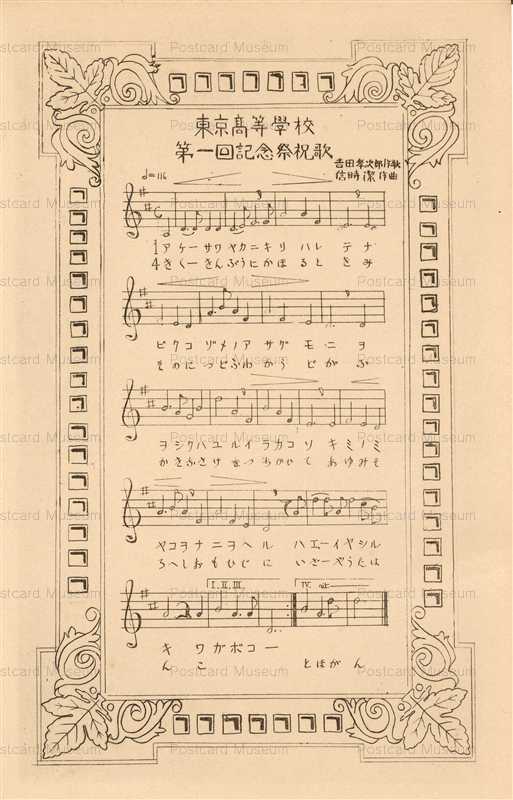 東京高等學校
第一回記念祭祝歌
吉田孝次郎作歌
信時潔作曲
♩=116
1 アケーサワヤカニキリ ハレ テナ
4 きくーきんぷうにかほ ると きみ
ビクコ ゾメノノア サグ モ ニ ヨ
そのにつどふわ かう ど がぶ
ヲシクハユ ルイ ラカコ ソ キミノミ
ヤコヲナニヲヘ ル ハエーイヤシル
ちへしおもひじに いざーやうたは
I, II, III.
IV.
キ ワガボコー
ん こ とほがん
Postcard Museum